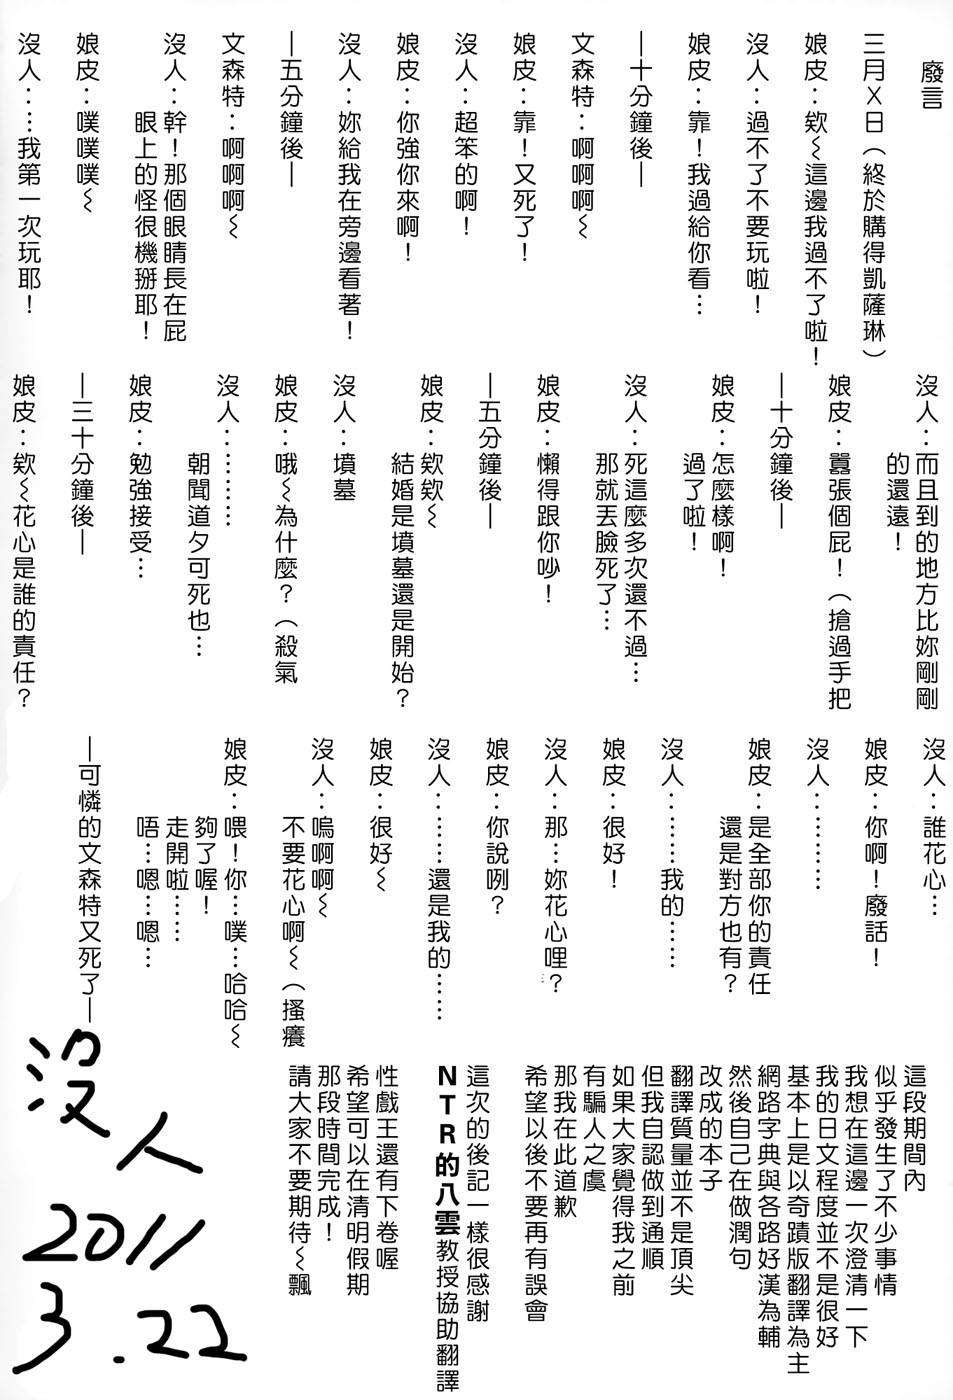 廢言
三月X日（終於購得凱薩琳）
娘皮：欸～這邊我過不了啦！
沒人：過不了不要玩啦！
娘皮：靠！我過給你看…
—十分鐘後—
文森特：啊啊啊～
娘皮：靠！又死了！
沒人：超笨的啊！
娘皮：你強你來啊！
沒人：妳給我在旁邊看著！
—五分鐘後—
文森特：啊啊啊～
沒人：幹！那個眼睛長在屁
眼上的怪很機掰耶！
娘皮：噗噗噗～
沒人：…我第一次玩耶！
沒人：而且到的地方比妳剛剛
的還遠！
娘皮：囂張個屁！（搶過手把
—十分鐘後—
娘皮：怎麼樣啊！
過了啦！
沒人：死這麼多次還不過…
那就丟臉死了…
娘皮：懶得跟你吵！
—五分鐘後—
娘皮：欸欸～
結婚是墳墓還是開始？
沒人：墳墓
娘皮：哦～為什麼？（殺氣
沒人：…………
朝聞道夕可死也…
娘皮：勉強接受…
—三十分鐘後—
娘皮：欸～花心是誰的責任？
沒人：誰花心…
娘皮：你啊！廢話！
沒人：…………
娘皮：是全部你的責任
還是對方也有？
沒人：………我的……
娘皮：很好！
沒人：那…妳花心哩？
娘皮：你說咧？
沒人：………還是我的……
娘皮：很好～
沒人：嗚啊啊～
不要花心啊～（搔癢
娘皮：喂！你…噗…哈哈～
夠了喔！
走開啦……
唔…嗯…嗯…
—可憐的文森特又死了—
這段期間內
似乎發生了不少事情
我想在這邊一次澄清一下
我的日文程度並不是很好
基本上是以奇蹟版翻譯為主
網路字典與各路好漢為輔
然後自己在做潤句
改成的本子
翻譯質量並不是頂尖
但我自認做到通順
如果大家覺得我之前
有騙人之虞
那我在此道歉
希望以後不要再有誤會
這次的後記一樣很感謝
NTR的八雲教授協助翻譯
性戲王還有下卷喔
希望可以在清明假期
那段時間完成！
請大家不要期待～飄
沒人
2011
3.22